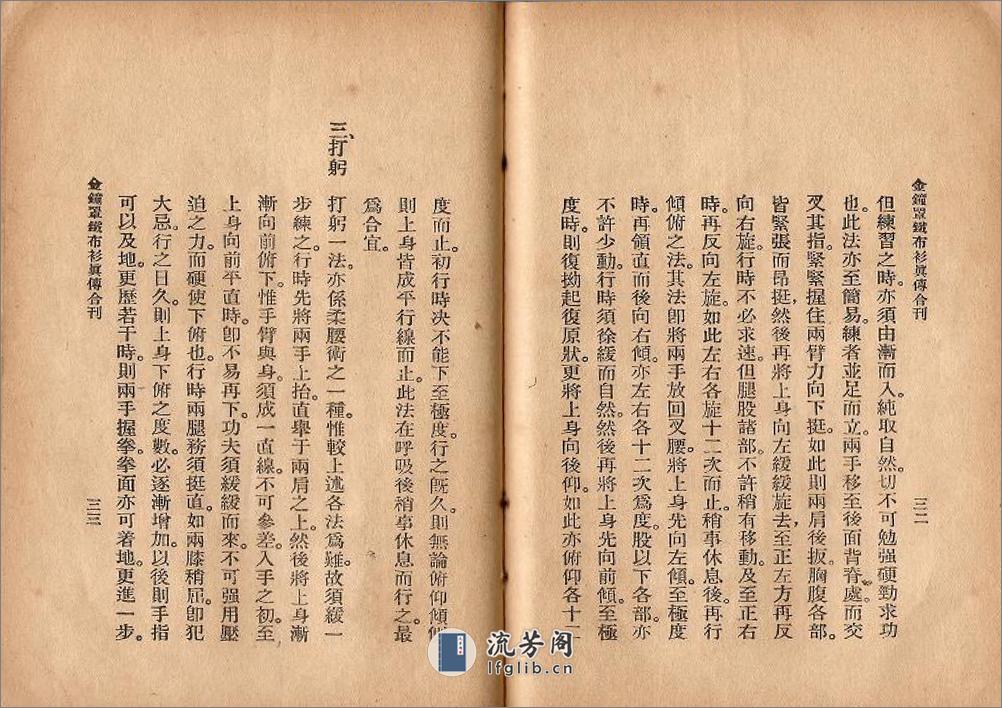 金鐘罩鐵布衫眞傳合刊
三二
但練習之時。亦須由漸而入。純取自然。切不可勉强硬勁求功
也。此法亦至簡易。練者並足而立。兩手移至後面背脊處而交
叉其指。緊緊握住。兩臂力向下挺。如此則兩肩後扳。胸腹各部。
皆緊張而昂挺。然後再將上身向左緩緩旋去。至正左方再反
向右旋。行時不必求速。但腿股諸部。不許稍有移動。及至正右
時。再反向左旋。如此左右各旋十二次而止。稍事休息後。再行
傾俯之法。其法卽將兩手放回叉腰。將上身先向左傾。至極度
時。再領直而後向右傾。亦左右各十二次爲度。股以下各部。亦
不許少動。行時須徐緩而自然。然後再將上身先向前傾。至極
度時。則復拗起復原狀。更將上身向後仰。如此亦俯仰各十二
度而止。初行時決不能下至極度。行之旣久。則無論俯仰傾側
則上身皆成平行線而止。此法在呼吸後稍事休息而行之。最
爲合宜。
三、打躬
打躬一法。亦係柔腰術之一種。惟較上述各法爲難。故須緩一
步練之。行時先將兩手上抬。直舉于兩肩之上。然後將上身漸
漸向前俯下。惟手臂與身。須成一直線。不可參差。入手之初。至
上身向前平直時。卽不易再下。功夫須緩緩而來。不可强用壓
迫之力。而硬使下俯也。行時兩腿務須挺直。如兩膝稍屈。卽犯
大忌。行之日久。則上身下俯之度數。必逐漸增加。以後則手指
可以及地。更歷若干時。則兩手握拳。拳面亦可着地。更進一步。
金鐘罩鐵布衫眞傳合刊
三三
流芳阁
lfglib.cn